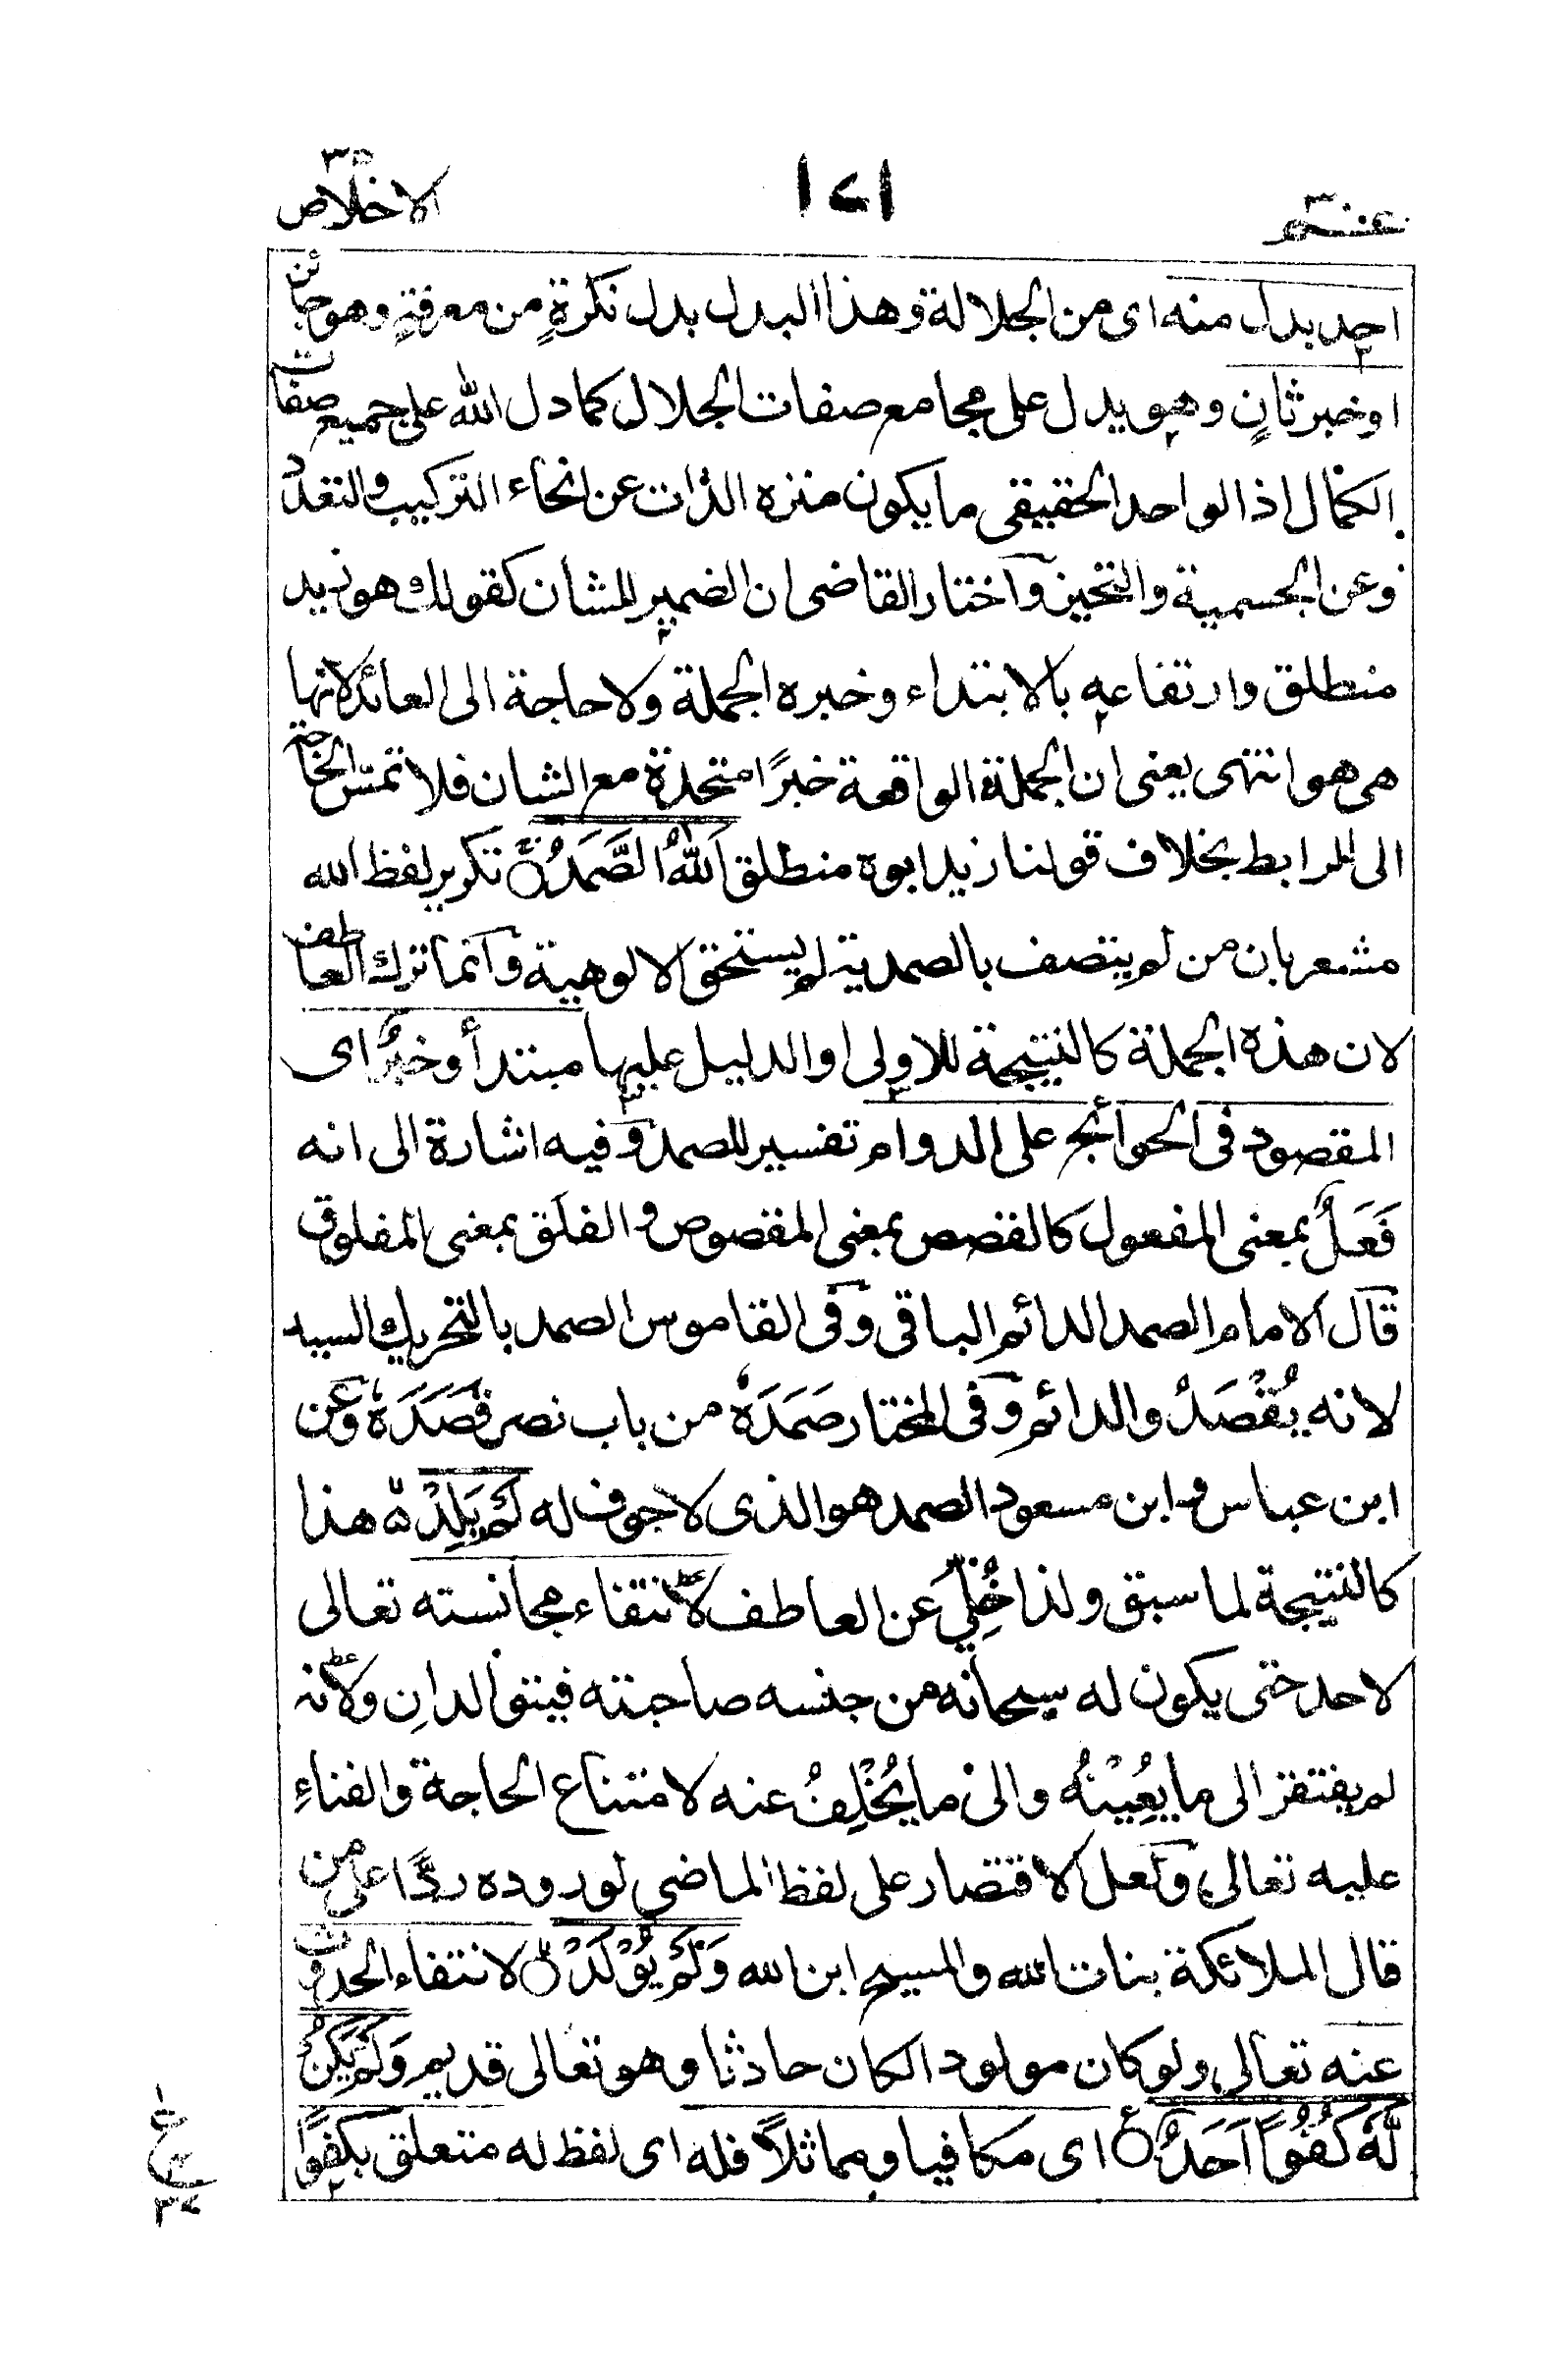 عم ٣٠
١٧١
الاخلاص
احد بدل منه اى من الجلالة وهذا البدل بدل نكرةٍ من معرفةٍ وهو جائز
او خبر ثانٍ وهو يدل على مجامع صفات الجلال كما دل الله على جميع صفات
الكمال اذ الواحد الحقيقى ما يكون منزه الذات عن انحاء التركيب والتعدد
وعن الجسمية والتحيز وآختار القاضى ان الضمير للشان كقولك هو زيد
منطلق وارتفاعه بالابتداء وخبره الجملة ولا حاجة الى العائد لانها
هى هو انتهى يعنى ان الجملة الواقعة خبرًا متحدة مع الشان فلا تمسّ الحاجة
الى الرابط بخلاف قولنا زيد ابوه منطلق اَللّٰهُ الصَّمَدُ تكرير لفظ الله
مشعر بان من لم يتصف بالصمدية لم يستحق الالوهية وآنما ترك العاطف
لان هذه الجملة كالنتيجة للاولى او الدليل عليها مبتدأ وخبرٌ اى
المقصود فى الحوائج على الدوام تفسير للصمد وفيه اشارة الى انه
فَعَلٌ بمعنى المفعول كالقصص بمعنى المقصوص والفلَق بمعنى المفلوق
قآل الامام الصمد الدائم الباقى وفى القاموس الصمد بالتحريك السيد
لانه يُقْصَدُ والدائم وفى المختار صَمَدَهٗ من باب نصر قَصَدَهٗ وعَن
ابن عباس وابن مسعود الصمد هو الذى لا جوف له لَمْ يَلِدْ هذا
كالنتيجة لما سبق ولذا خُلِّيَ عن العاطف لانتفاء مجانسته تعالى
لاحد حتى يكون له سبحانه من جنسه صاحبته فيتوالدانِ ولانه
لم يفتقر الى ما يُعِيْنُه والى ما يُخْلِفُ عنه لامتناع الحاجة والفناءِ
عليه تعالى ولَعل الاقتصار على لفظ الماضى لوروده ردًّا على من
قال الملائكة بنات الله والمسيح ابن الله وَلَمْ يُوْلَدْ لانتفاء الحدوث
عنه تعالى ولو كان مولودا لكان حادثا وهو تعالى قديم وَلَمْ يَكُنْ
لَّهٗ كُفُوًا اَحَدٌ اى مكافيا ومماثلاً فله اى لفظ له متعلق بكفوًا
ع